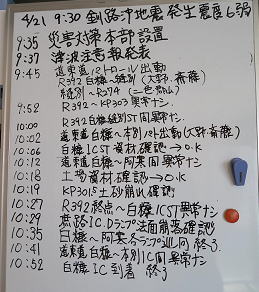 4/21 9:30 釧路沖地震発生震度6弱
9:35 災害対策本部設置
9:37 津波注意報発表
9:45 道東道パトロール出動
R392 白糠〜縫別(大野・斎藤)
縫別〜R274(二色・高山)
9:52 R392〜KP303 異常ナシ
10:00 R392 白糠縫別ST間 異常ナシ
10:02 道東道白糠〜本別パト出動(大野・斎藤)
10:06 白糠ICST資材確認→O.K
10:12 道東道白糠〜阿寒間異常ナシ
10:18 土場資材確認→O.K
10:19 KP301.5 土砂崩れ確認
10:27 R392終点〜白糠ICST異常ナシ
10:29 庶路IC.Dランプ法面崩落確認
10:35 白糠〜阿寒各ランプ巡回 終了
10:41 道東道白糠〜本別IC間異常ナシ
10:52 白糠IC到着 終了